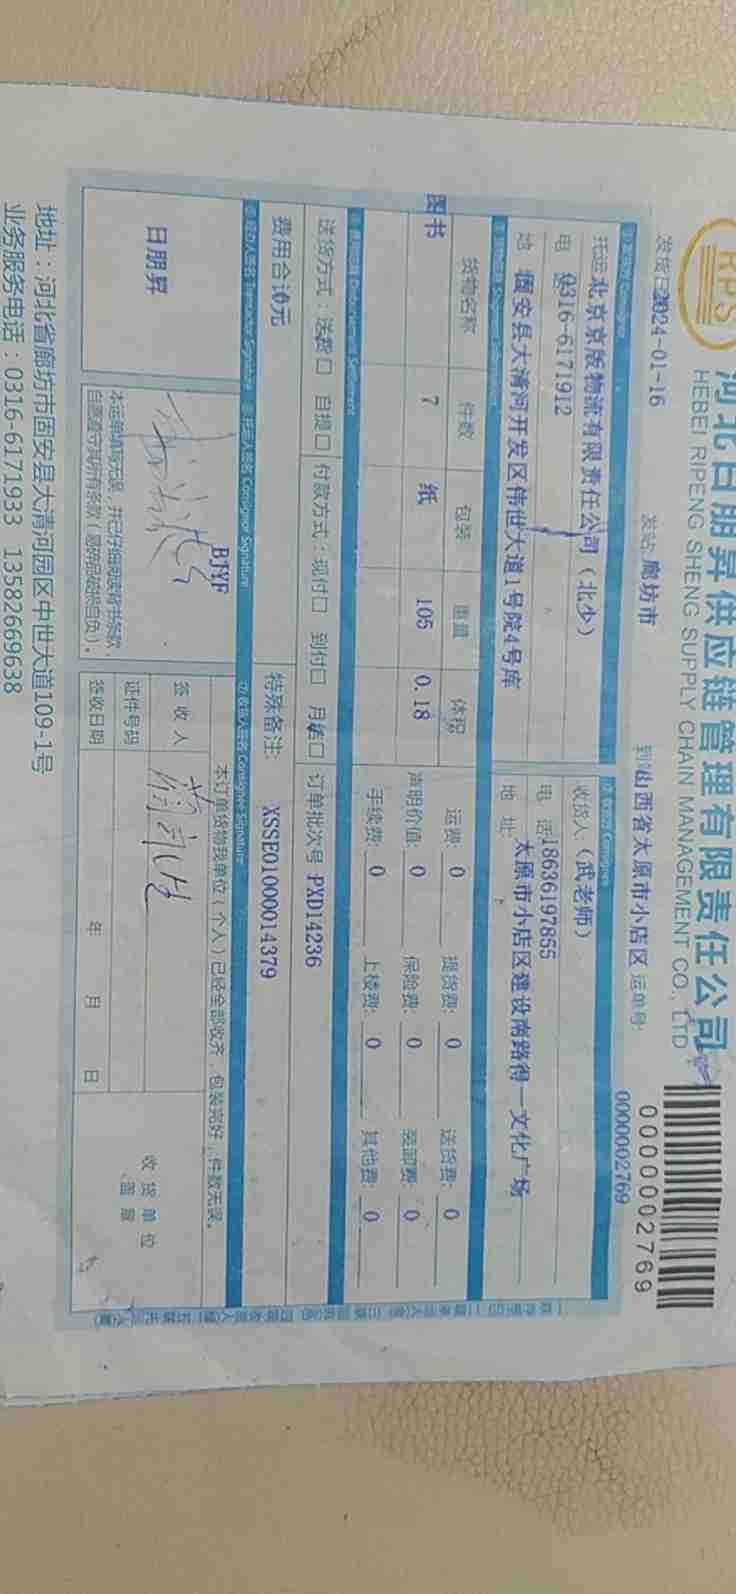 RPS
河北日朋昇供应链管理有限责任公司
HEBEI RIPENG SHENG SUPPLY CHAIN MANAGEMENT CO., LTD
00000002769
发货日 2024-01-16 发站: 廊坊市 到站 山西省太原市小店区 运单号: 0000002769
托运 北京京版物流有限责任公司（北少）
电 0316-6171912
地 固安县大清河开发区伟世大道1号院4号库
收货人: (武老师)
电 话 18636197855
地 址: 太原市小店区建设南路得一文化广场
货物名称 件数 包装 重量 体积
图书 7 纸 105 0.18
运费: 0 提货费: 0 送货费: 0
声明价值: 0 保险费: 0 装卸费: 0
手续费: 0 上楼费: 0 其他费: 0
送货方式: 送货口 自提口 付款方式: 现付口 到付口 月结口 订单批次号 PXD14236
费用合计0元 特殊备注: XSSE01000014379
托运人签名 Consignor Signature
收货人签名 Consignee Signature
日朋昇
BJYF
本订单货物我单位（个人）已经全部收齐，包装完好，件数无误。
签 收 人
证件号码
签收日期 年 月 日
收货单位
盖章
地址：河北省廊坊市固安县大清河园区中世大道109-1号
业务服务电话：0316-6171933 13582669638